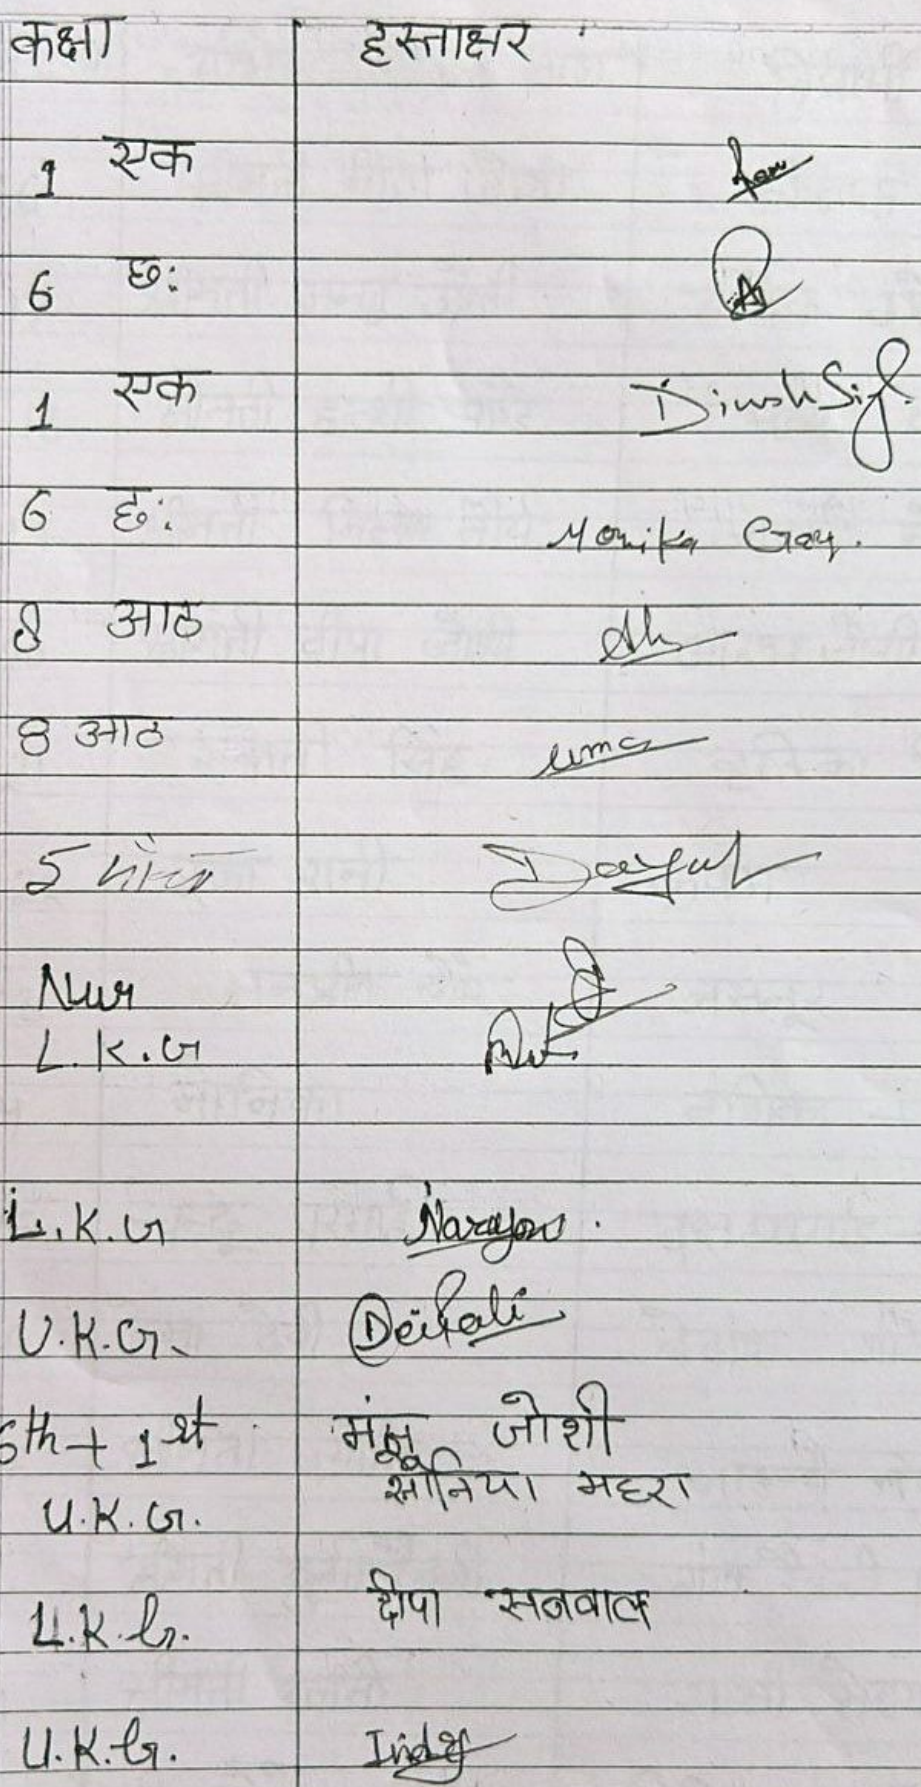 कक्षा हस्ताक्षर
1 एक
6 छ:
1 एक Dinesh
6 छ: Monika
8 आठ
8 आठ uma
5 पाँच
Nur
L.K.G
L.K.G Narayan.
U.K.G. Deepali
6th + 1st मंजू जोशी
U.K.G. सोनिया महरा
U.K.G. दीपा सनवाल
U.K.G.